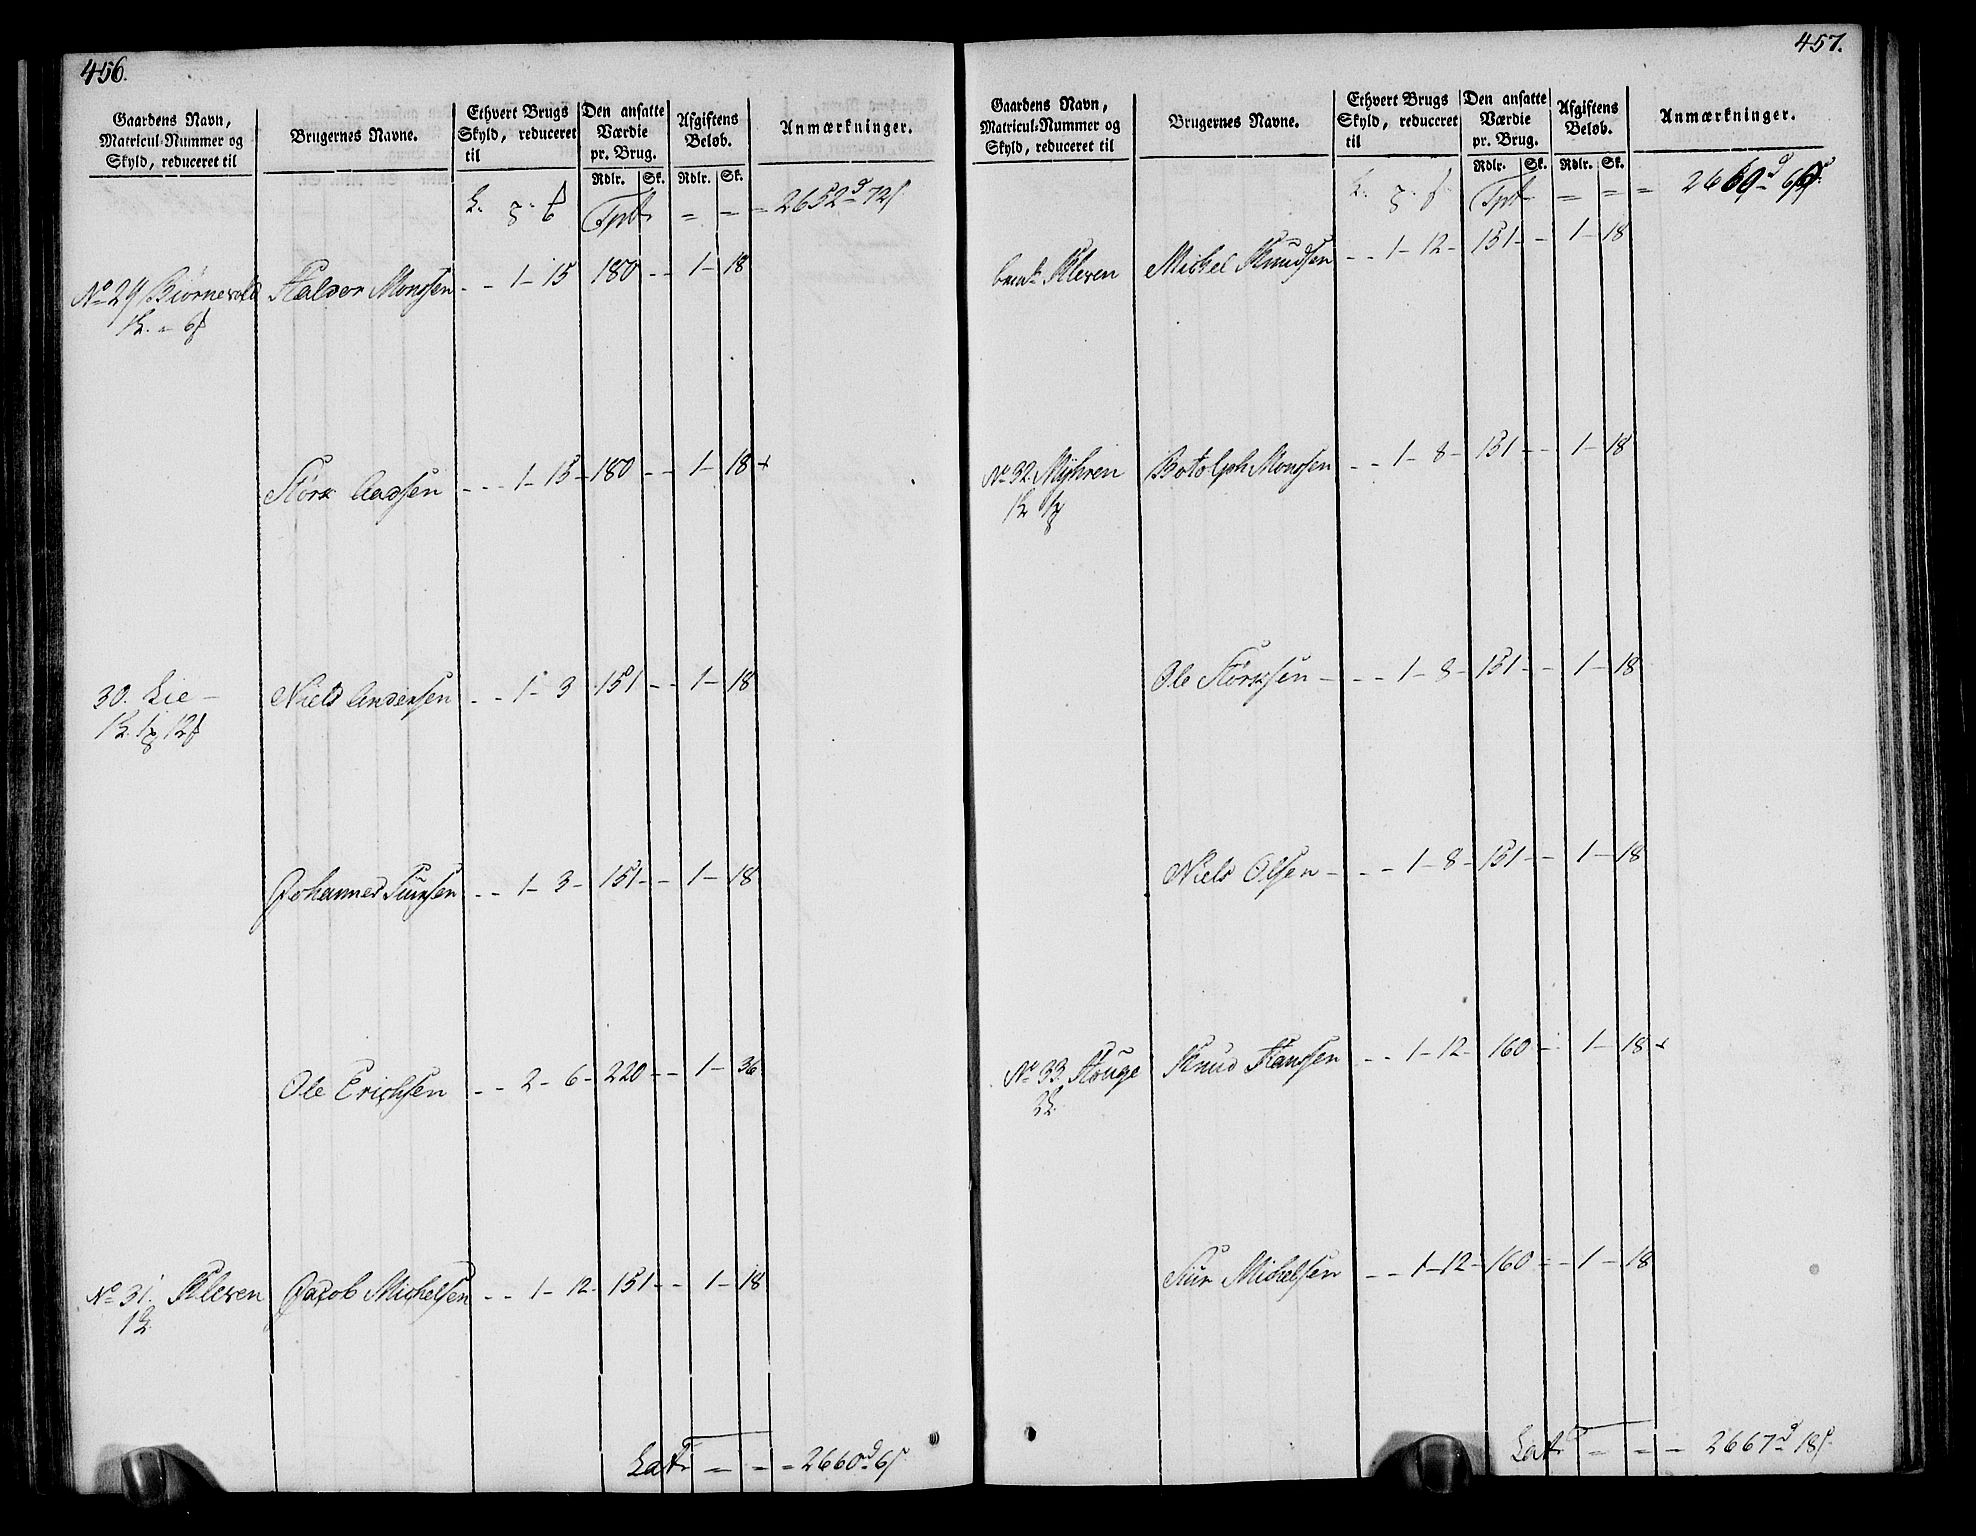 456.
Gaardens Navn,
Matricul-Nummer og
Skyld, reduceret til
Brugernes Navne.
Ethvert Brugs
Skyld, reduceret
til
Den ansatte
Værdie
pr. Brug.
Rdlr. Sk.
Afgiftens
Beløb.
Rdlr. Sk.
Anmærkninger.
Tpt = = = 2652 d 72 s
No 29 Biørnevold Halvor Monssen - - 1 - 15 180 - - 1 - 18
Størk Aadsen - - - 1 - 15 - 180 - - 1 - 18 +
30. Lie - Niels Andersen - - 1 - 3 151 - - 1 - 18
Johannes Siursen - - 1 - 3 - 151 - - 1 - 18
Ole Erichsen - - 2 - 6 - 220 - - 1 - 36
No 31. Kleven Jacob Michelsen - - 1 - 12 - 151 - - 1 - 18
Lat = = = 2660 d 6 s
457.
Gaardens Navn,
Matricul-Nummer og
Skyld, reduceret til
Brugernes Navne.
Ethvert Brugs
Skyld, reduceret
til
Den ansatte
Værdie
pr. Brug.
Rdlr. Sk.
Afgiftens
Beløb.
Rdlr. Sk.
Anmærkninger.
Tpt = = = 2660 d 6 s
Kleven Michel Knudsen - - 1 - 12 - 151 - - 1 - 18
No 32. Myhren Botolph Monssen - - 1 - 8 - 151 - - 1 - 18
Ole Størksen - - - 1 - 8 - 151 - - 1 - 18
Niels Olsen - - - 1 - 8 - 151 - - 1 - 18
No 33. Houge Knud Hanssen - - 1 - 12 - 160 - - 1 - 18 +
Siur Michelsen - - 1 - 12 - 160 = - 1 - 18
Lat = = = 2667 d 18 s